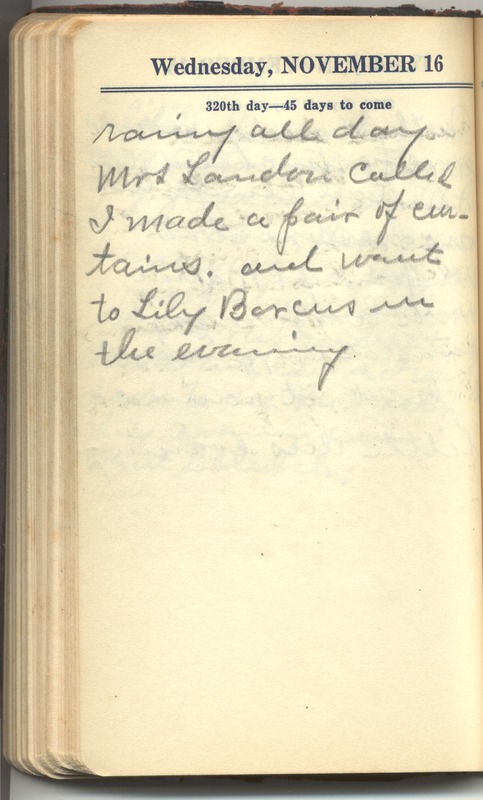 Wednesday, NOVEMBER 16
320th day—45 days to come
rainy all day
Mrs Landon called
I made a pair of cur-
tains. and want
to Lily Borcus in
the evening